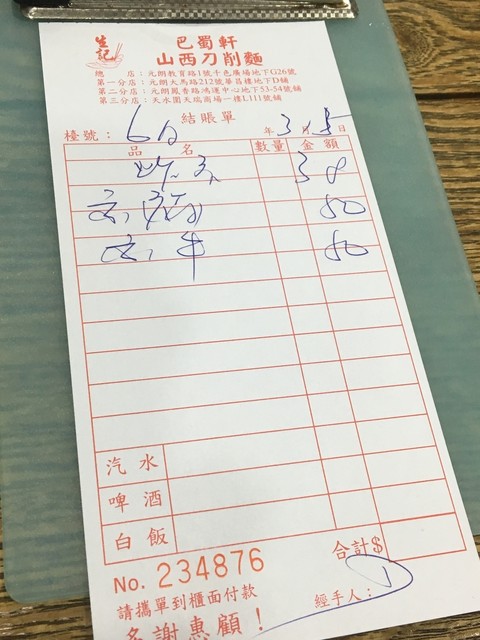 生記
巴蜀軒
山西刀削麵
總 店：元朗教育路1號千色廣場地下G26號
第一分店：元朗大馬路212號華昌樓地下D舖
第二分店：元朗鳳香路鴻運中心地下53-54號舖
第三分店：天水圍天瑞商場一樓L111號舖
結賬單
檯號： 年 3 月 5 日
品 名 數量 金額
38
50
50
汽水
啤酒
白飯
No. 234876 合計$
請攜單到櫃面付款 經手人：
多謝惠顧！